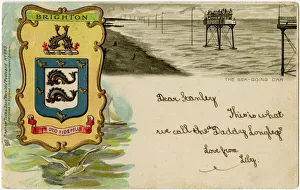 BRIGHTON
THE SEA-GOING CAR
Dear Stanley
This is what
we call the "Daddy Longlegs"
Love from
Lily.